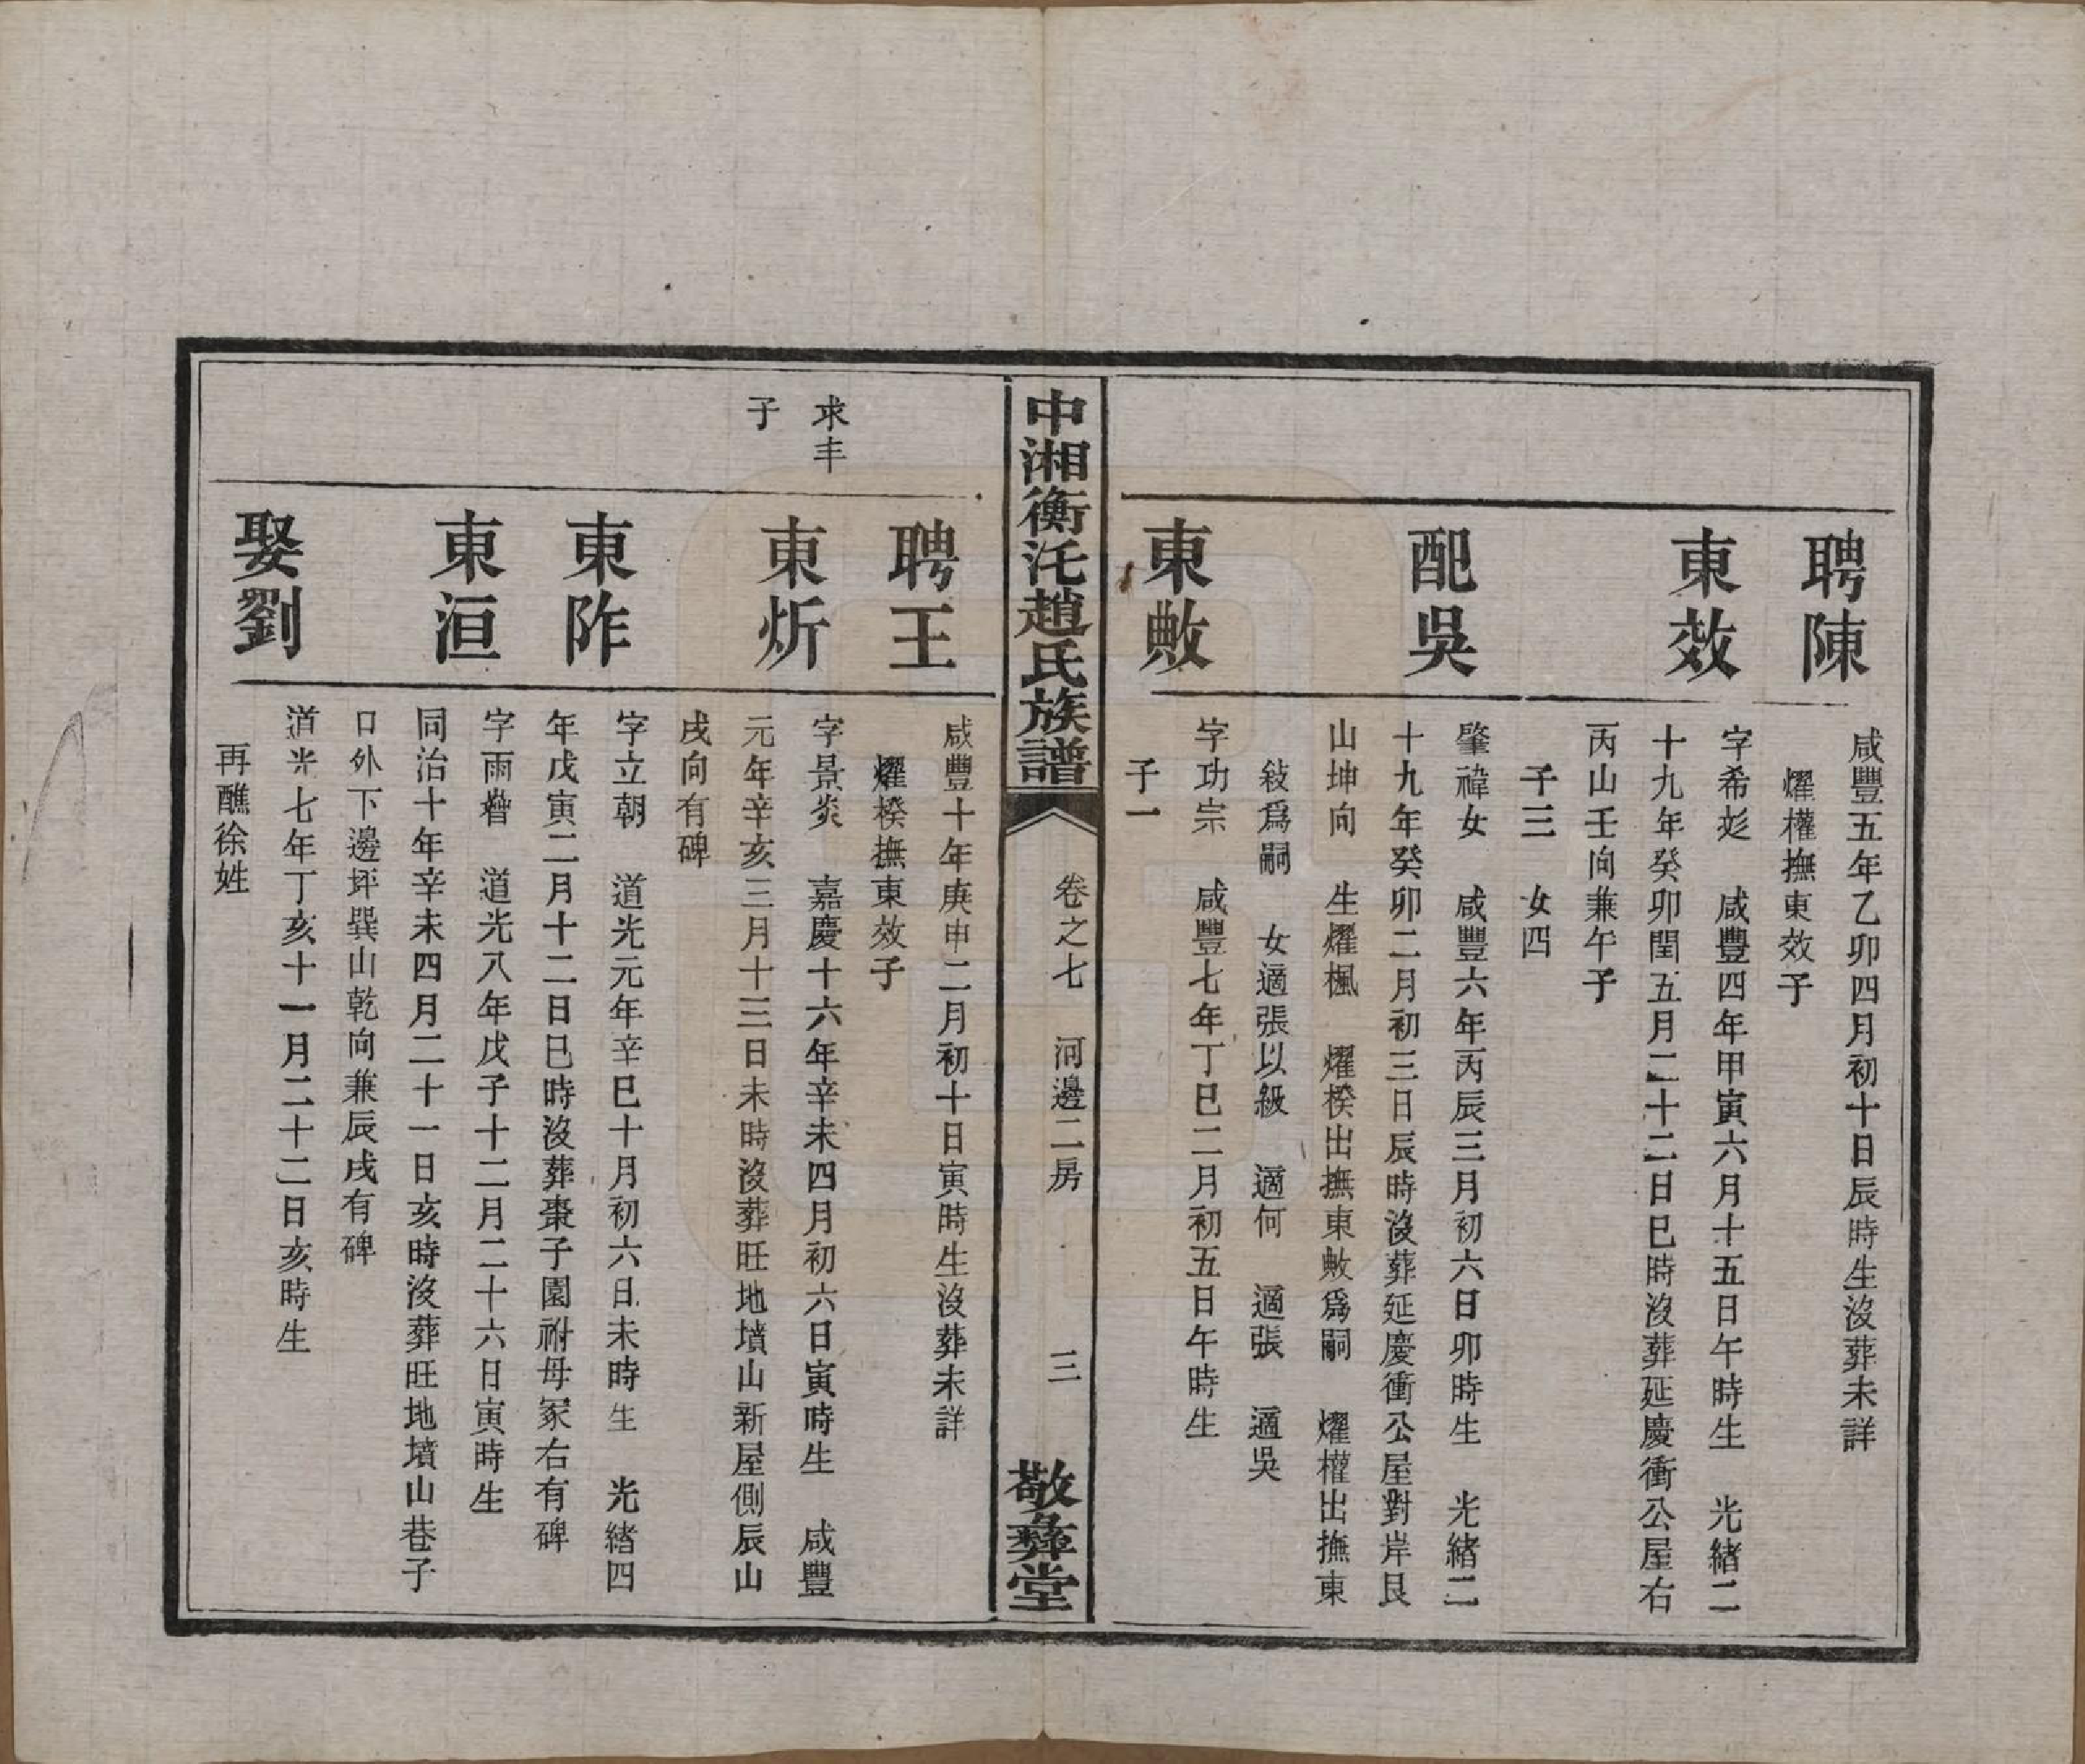 聘陳
咸豐五年乙卯四月初十日辰時生沒葬未詳
燿權撫東效子
東效
字希彣 咸豐四年甲寅六月十五日午時生 光緒二
十九年癸卯閏五月二十二日巳時沒葬延慶衝公屋右
丙山壬向兼午子
子三 女四
配吳
肇禕女 咸豐六年丙辰三月初六日卯時生 光緒二
十九年癸卯二月初三日辰時沒葬延慶衝公屋對岸艮
山坤向 生燿楓 燿楑出撫東敟爲嗣 燿權出撫東
敍爲嗣 女適張以級 適何 適張 適吳
東敟
字功宗 咸豐七年丁巳二月初五日午時生
子一
中湘衡汑趙氏族譜
卷之七 河邊二房 三
敬彞堂
聘王
咸豐十年庚申二月初十日寅時生沒葬未詳
燿楑撫東效子
求丰
子
東炘
字景炎 嘉慶十六年辛未四月初六日寅時生 咸豐
元年辛亥三月十三日未時沒葬旺地墳山新屋側辰山
戌向有碑
東阼
字立朝 道光元年辛巳十月初六日未時生 光緒四
年戊寅二月十二日巳時沒葬棗子園祔母冢右有碑
東洹
字雨 道光八年戊子十二月二十六日寅時生
同治十年辛未四月二十一日亥時沒葬旺地墳山巷子
口外下邊坪巽山乾向兼辰戌有碑
娶劉
道光七年丁亥十一月二十二日亥時生
再醮徐姓